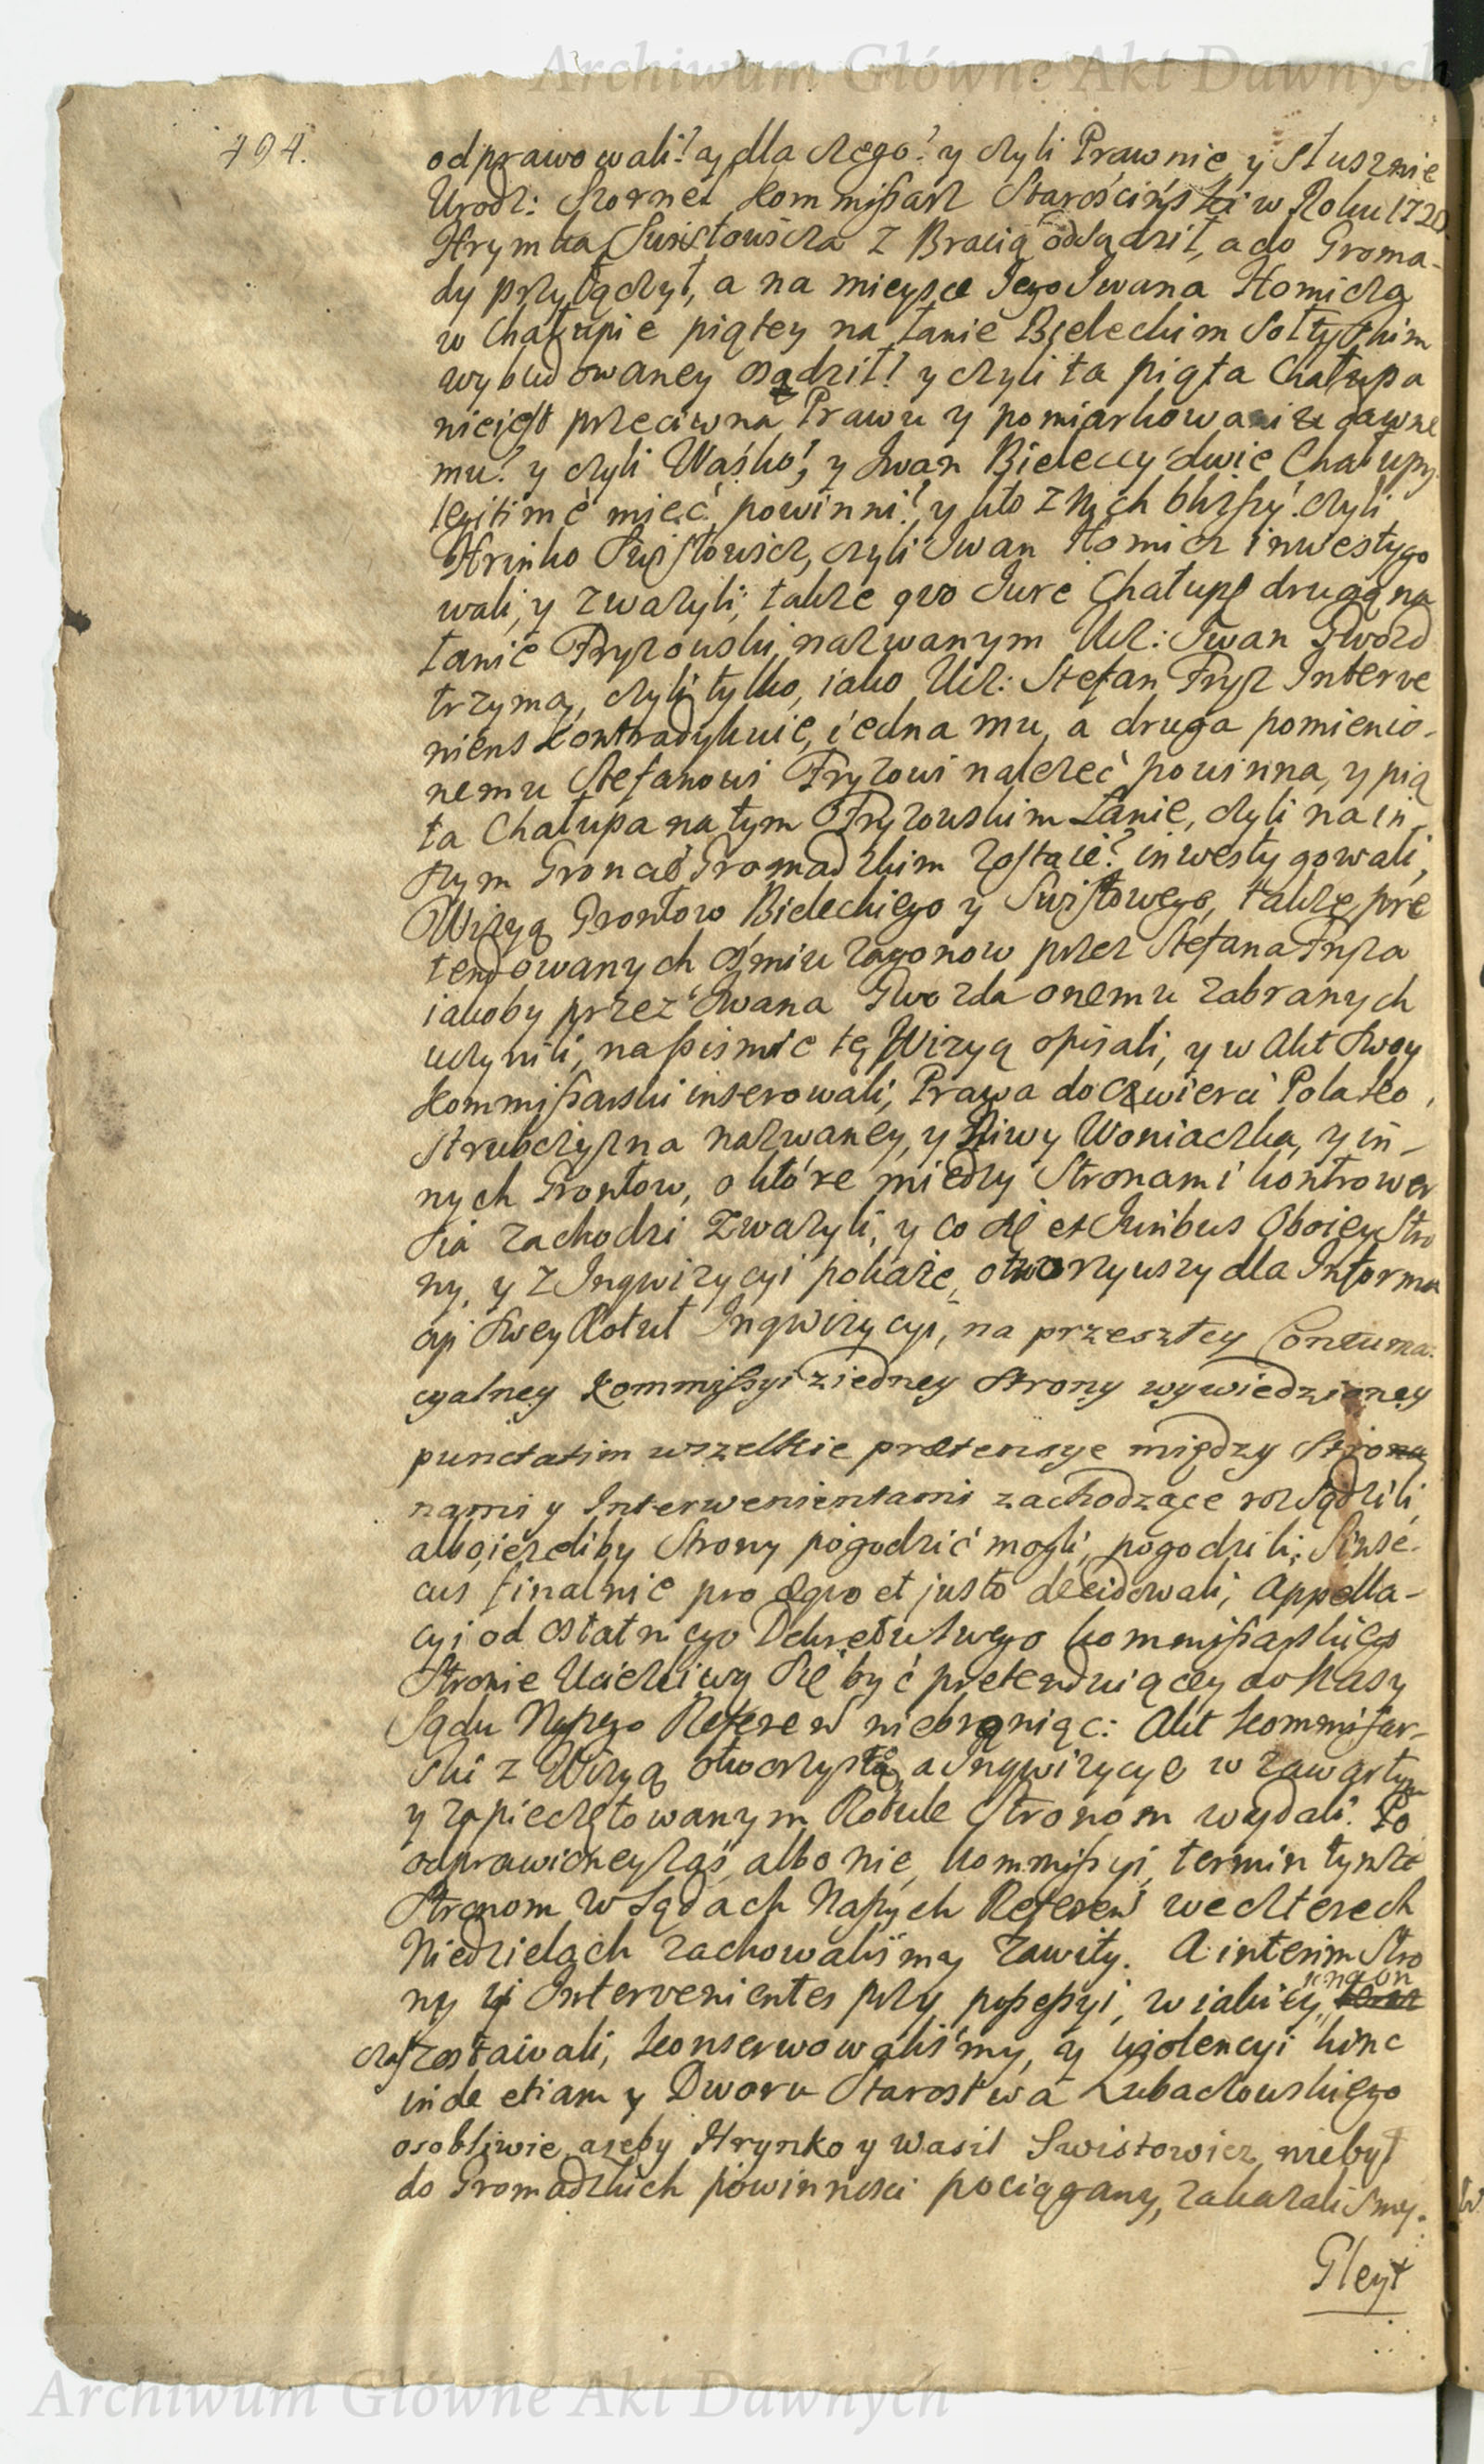 Archiwum Główne Akt Dawnych
494.
odprawowali? a dla czego? y czyli Prawnie y słusznie
Urodz: Szornel Kommissarz Starościński w Roku 1720.
Hrymka Swistowicza z Bracią odsądził, a do Groma-
dy przyłączył, a na mieysce Jego Iwana Homicza
w Chałupie piątey na Łanie Bieleckim Sołtyskim
wybudowaney osądził? y czyli ta piąta Chałupa
niejest przeciwna Prawu y pomiarkowaniu dawne
mu? y czyli Waśko, y Iwan Bieleccy dwie Chałupy
legitimè mieć powinni? y kto z Nich bliższy? czyli
Hrinko Swistowicz, czyli Iwan Homicz inwestygo
wali, y zważyli; także quo Jure Chałupę drugą na
Łanie Fryzowski nazwanym Ucz: Iwan Gwozd
trzyma, czyli tylko, iako Ucz: Stefan Fryz Interve
niens kontradykuie, iedna mu, a druga pomienio-
nemu Stefanowi Fryzowi należeć powinna, y pią
ta Chałupa na tym Fryzowskim Łanie, czyli na in-
szym Groncie Gromadzkim zostaie? inwestygowali,
Wizyą Grontow Bieleckiego y Swistowego, także pre
tendowanych ośmiu zagonow przez Stefana Fryza
iakoby przez Iwana Gwozda onemu zabranych
uczynili, na piśmie tę Wizyą opisali, y w Akt swoy
Kommissarski inserowali, Prawa do czwierci Pola Ko
strubczyzna nazwaney, y Niwy Woniaczka, y in-
nych Grontow, o które między Stronami kontrower
sia zachodzi zważyli, y co się ex Juribus Oboiey Stro
ny, y z Inqwizycyi pokaże, otworzywszy dla Informa
cyi swey Rotuł Inqwizycyi, na przeszłey Contuma-
cyalney Kommissyi z iedney strony wywiedzioney
punctatim wszelkie prætensye między Stro
nami y Interwenientami zachodzące rozsądzili,
albo ieżeliby Strony pogodzić mogli, pogodzili; sin se-
cus finalnie pro æquo et justo decidowali, Appella-
cyi od ostatniego Dekretu swego Kommissarskiego
Stronie Uciążliwą się być pretenduiącey do Naszy
Sądu Naszego Referen niebroniąc: Akt Kommissar-
ski z Wizyą otworzystą, a Inqwizycye w zawartym
y zapieczętowanym Rotule Stronom wydali. Po
odprawioney zaś, albo nie, Kommissyi, termin tymże
Stronom w Sądach Naszych Referen we czterech
Niedzielach zachowaliśmy zawity. A interim Stro
ny y Intervenientes przy possessyi, w iakiey się na on
czas zostawali, konserwowaliśmy, y violencyi hinc
inde etiam y Dworu Starostwa Lubaczowskiego
osobliwie ażeby Hrynko y Wasil Swistowicz niebył
do Gromadzkich powinnosci pociągany, zakazaliśmy.
Gleyt
Archiwum Główne Akt Dawnych